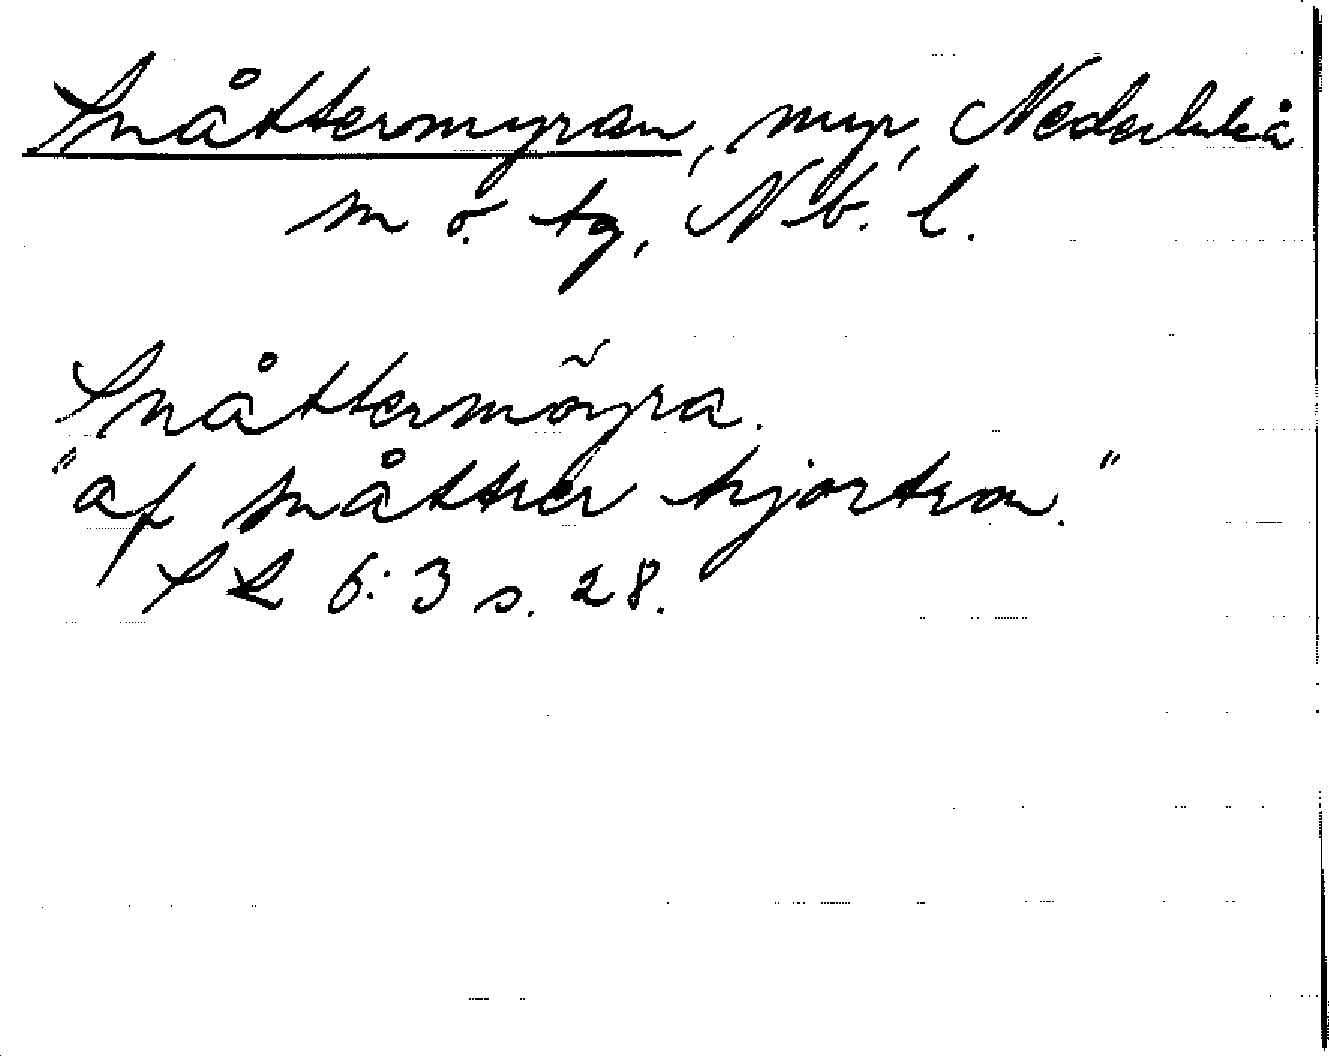 Snåttermyran, myr, Nederluleå
sn o. tg, Nb. l.
Snåttermõyra.
"af snåtter hjortron."
SL 6:3 s. 28.